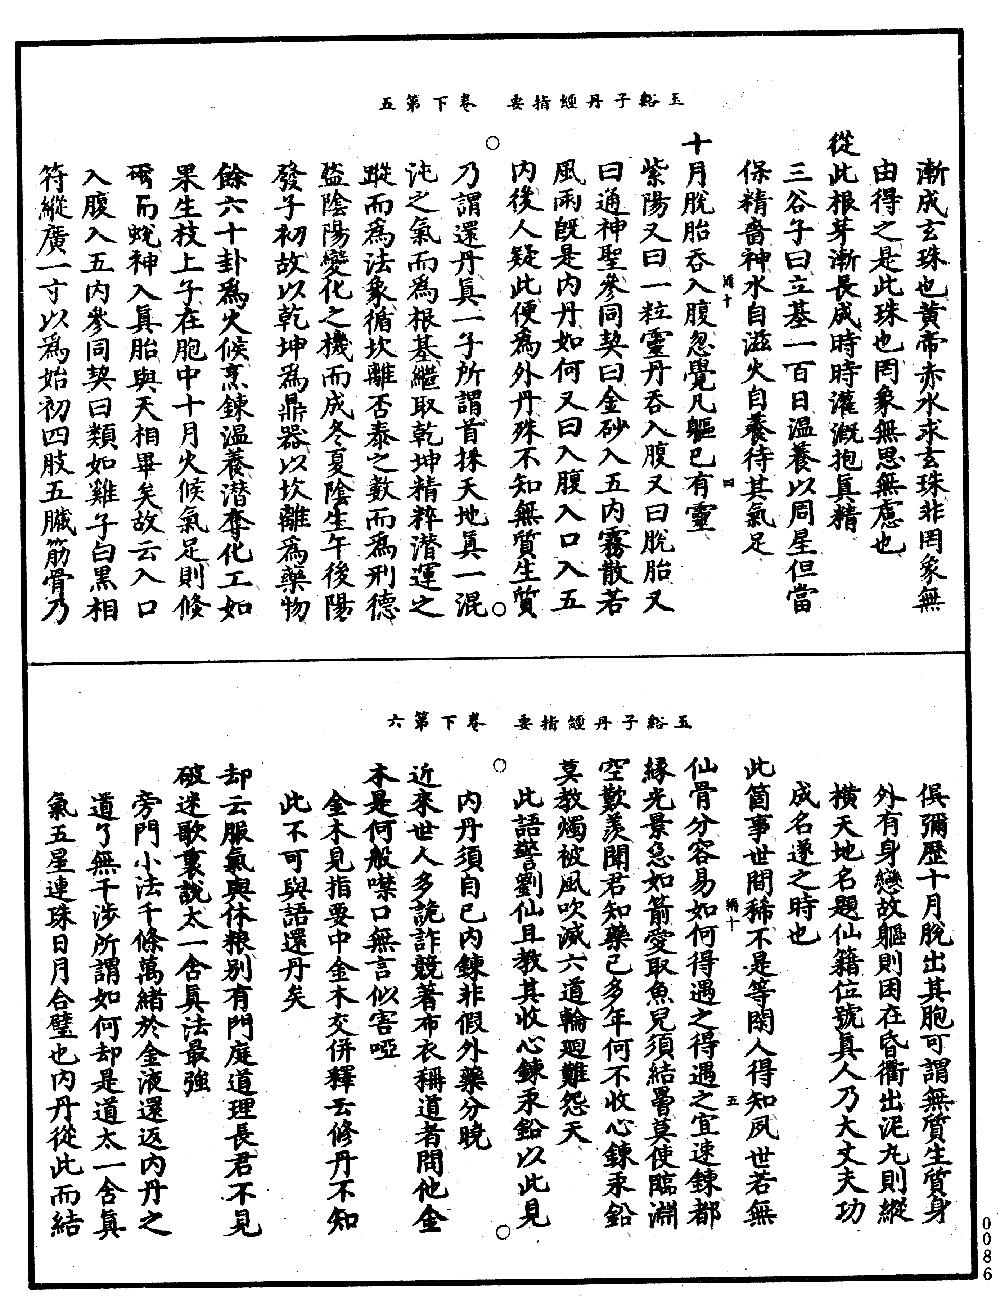 玉谿子丹經指要　卷下第五
漸成玄珠也黃帝赤水求玄珠非罔象無
由得之是此珠也罔象無思無慮也
從此根芽漸長成時時灌溉抱真精
三谷子曰立基一百日溫養以周星但當
保精嗇神水自滋火自養待其氣足
十月脫胎吞入腹忽覺凡軀已有靈
紫陽又曰一粒靈丹吞入腹又曰脫胎又
曰通神聖參同契曰金砂入五內霧散若
風雨既是內丹如何又曰入腹入口入五
內後人疑此便為外丹殊不知無質生質
乃謂還丹真一子所謂首採天地真一混
沌之氣而為根基繼取乾坤精粹潛運之
蹤而為法象循坎離否泰之數而為刑德
盜陰陽變化之機而成冬夏陰生午後陽
發子初故以乾坤為鼎器以坎離為藥物
餘六十卦為火候烹鍊溫養潛奪化工如
果生枝上子在胞中十月火候氣足則脩
尔而蛻神入真胎與天相畢矣故云入口
入腹入五內參同契曰類如雞子白黑相
符縱廣一寸以為始初四肢五臟筋骨乃
玉谿子丹經指要　卷下第六
俱彌歷十月脫出其胞可謂無質生質身
外有身戀故軀則困在昏衢出泥丸則縱
橫天地名題仙籍位號真人乃大丈夫功
成名遂之時也
此箇事世間稀不是等閑人得知夙世若無
仙骨分容易如何得遇之得遇之宜速鍊都
緣光景急如箭愛取魚兒須結罾莫使臨淵
空歎羨聞君知藥已多年何不收心鍊汞鉛
莫教燭被風吹滅六道輪迴難怨天
此語警劉仙且教其收心鍊汞鉛以此見
內丹須自己內鍊非假外藥分曉
近來世人多詭詐競著布衣稱道者問他金
木是何般噤口無言似害啞
金木見指要中金木交併釋云修丹不知
此不可與語還丹矣
却云服氣與休粮別有門庭道理長君不見
破迷歌裏說太一含真法最強
旁門小法千條萬緒於金液還返內丹之
道了無干涉所謂如何却是道太一含真
氣五星連珠日月合璧也內丹從此而結
0086